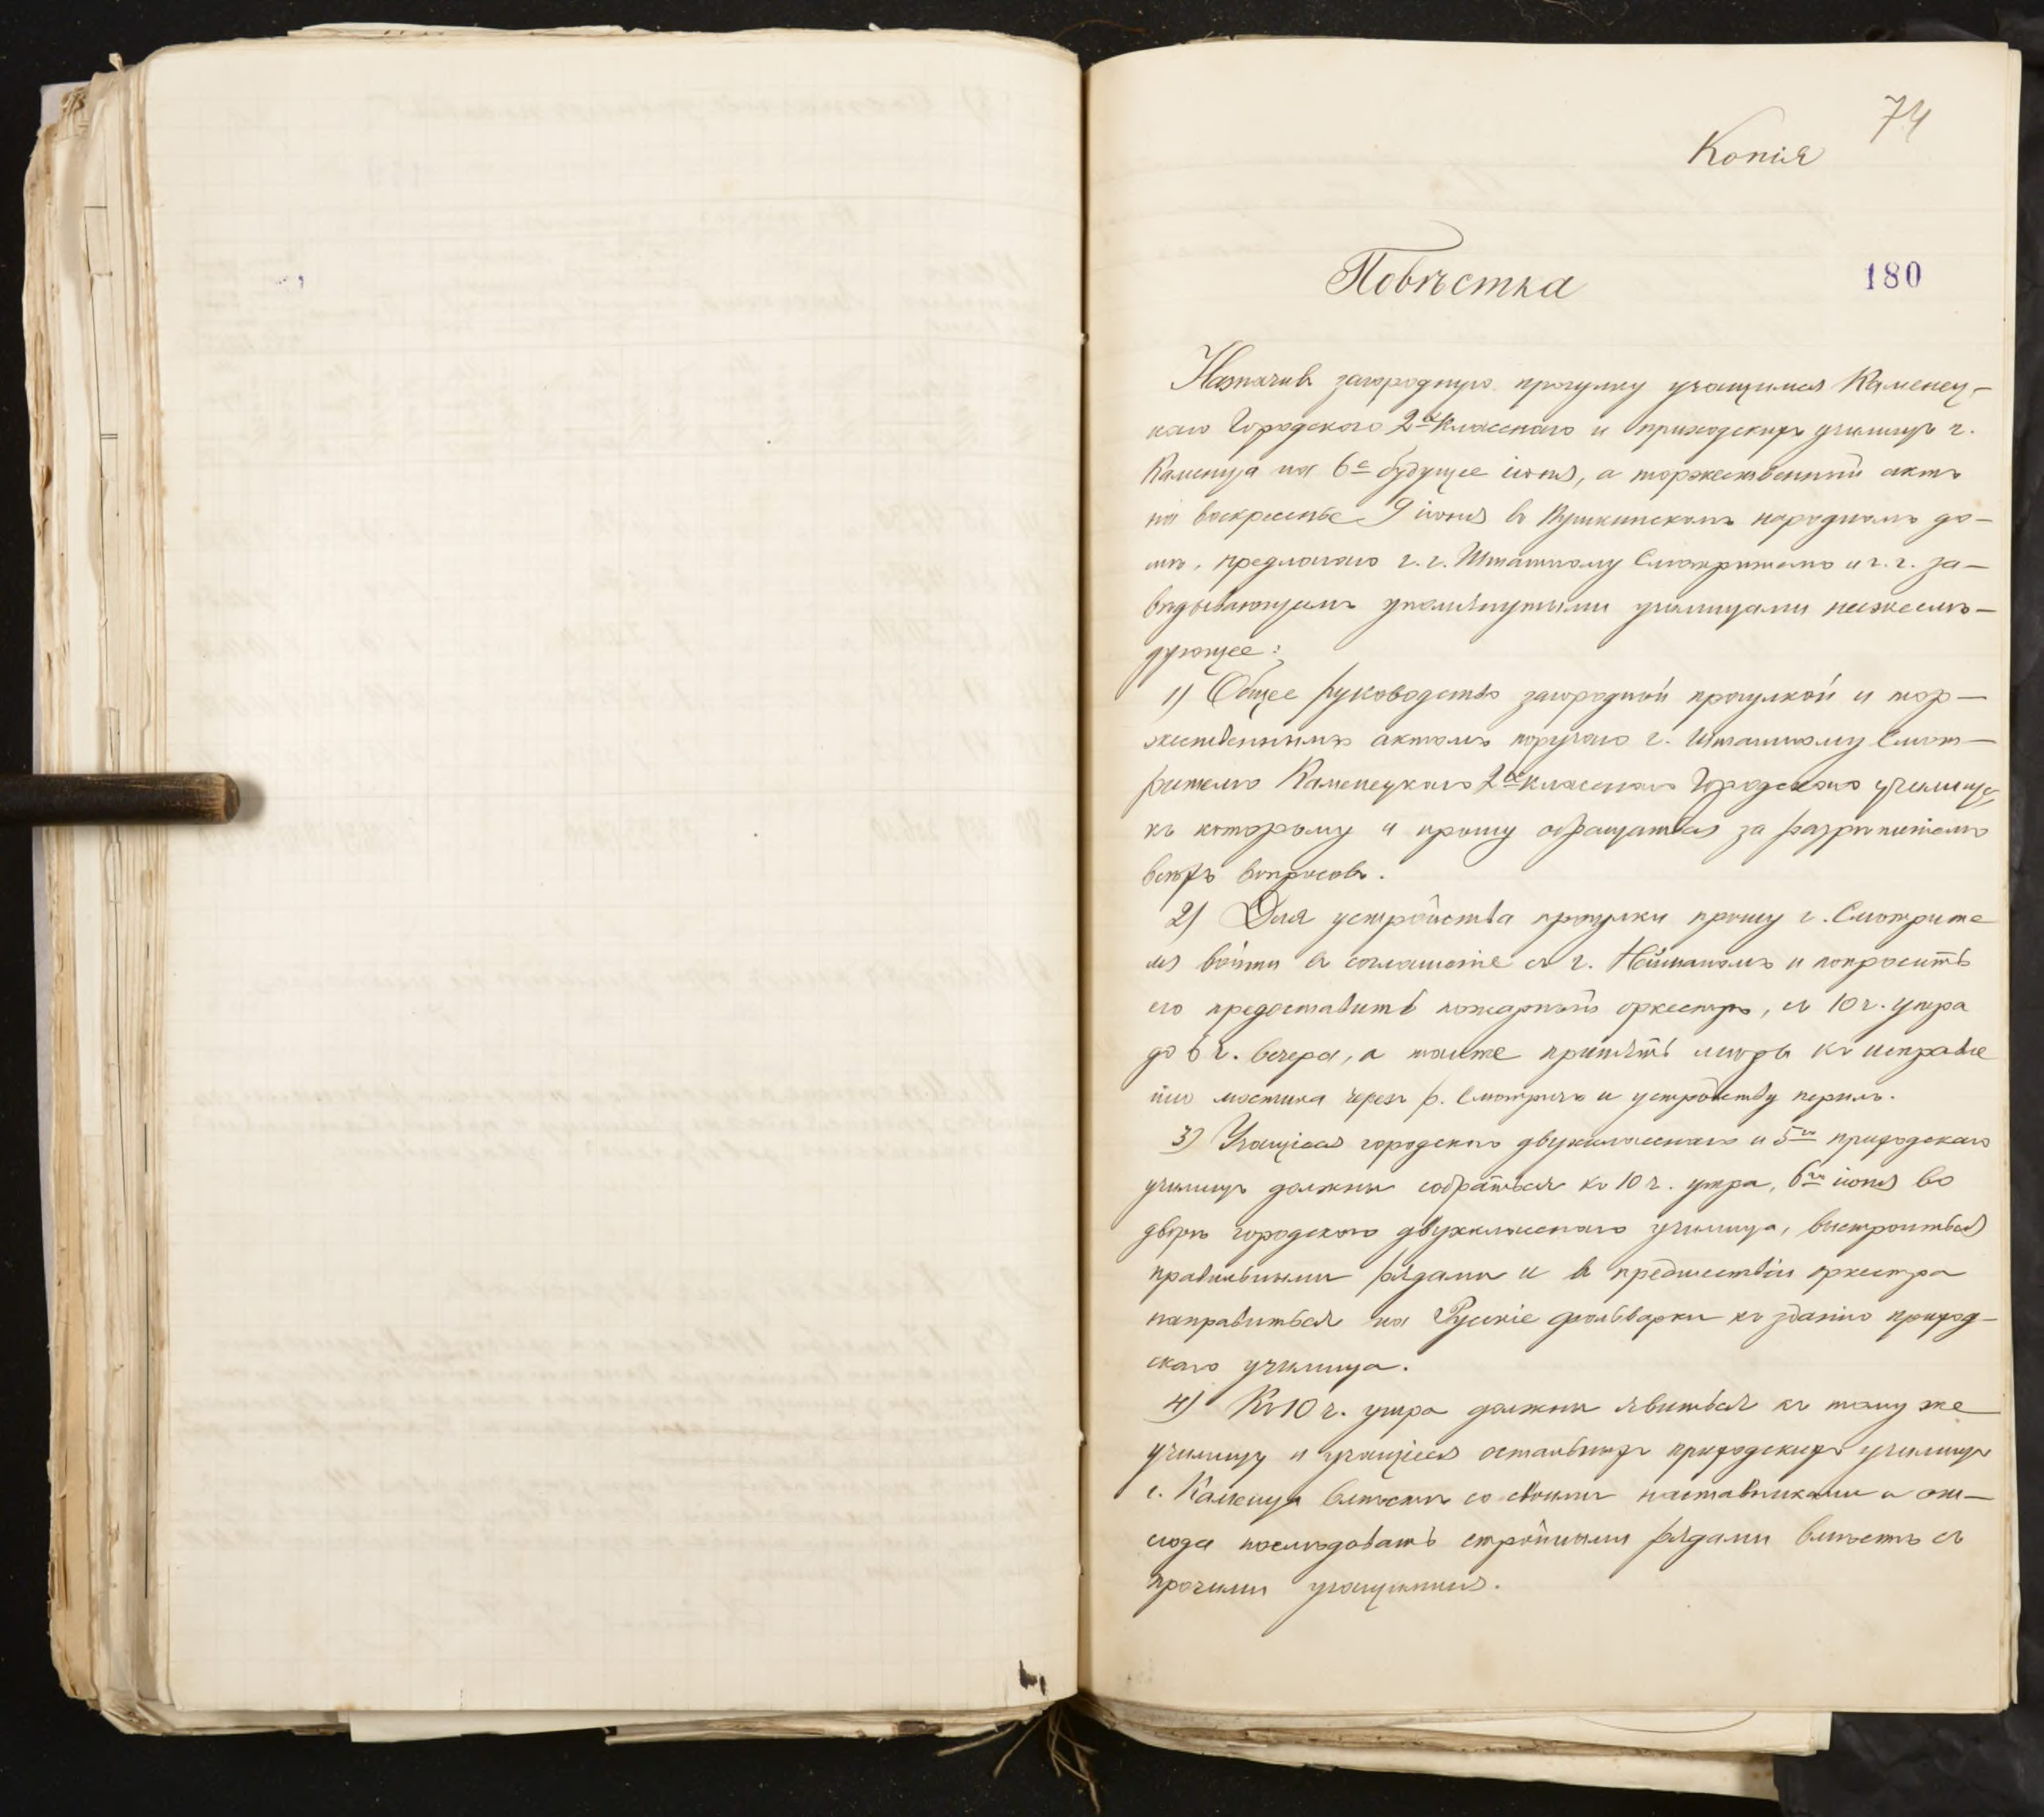 74
Копія
Повѣстка
180
Назначивъ загородную прогулку учащимся Каменец-
каго Городского 2хкласснаго и приходскихъ училищъ г.
Каменца на 6е будущее іюня, а торжественный актъ
на воскресенье 9 іюня въ Пушкинскомъ народномъ до-
мѣ, предлагаю г.г. Штатному Смотрителю и г.г. за-
вѣдывающимъ упомянутыми училищами нижеслѣ-
дующее:
1) Общее руководство загородной прогулкой и тор-
жественнымъ актомъ поручаю г. Штатному Смот-
рителю Каменецкаго 2хкласснаго Городского училища,
къ которому и прошу обращаться за разрѣшеніемъ
всѣхъ вопросовъ.
2) Для устройства прогулки прошу г. Смотрите
ля войти въ соглашеніе съ г. Нейманомъ и попросить
его предоставить пожарный оркестръ, съ 10 ч. утра
до 6 ч. вечера, а также принять мѣры къ исправле
нію мостика черезъ р. Смотричъ и устройству перилъ.
3) Учащіеся городского двухкласснаго и 5го приходскаго
училищъ должны собраться къ 10 ч. утра, 6го іюня во
дворѣ городского двухкласснаго училища, выстроиться
правильными рядами и въ предшествіи оркестра
направиться на Русскіе фольварки къ зданію приход-
скаго училища.
4) Къ 10 ч. утра должны явиться къ тому же
училищу и учащіеся остальныхъ приходскихъ училищъ
г. Каменца вмѣстѣ со своими наставниками и от-
сюда послѣдовать стройными рядами вмѣстѣ съ
прочими учащимися.